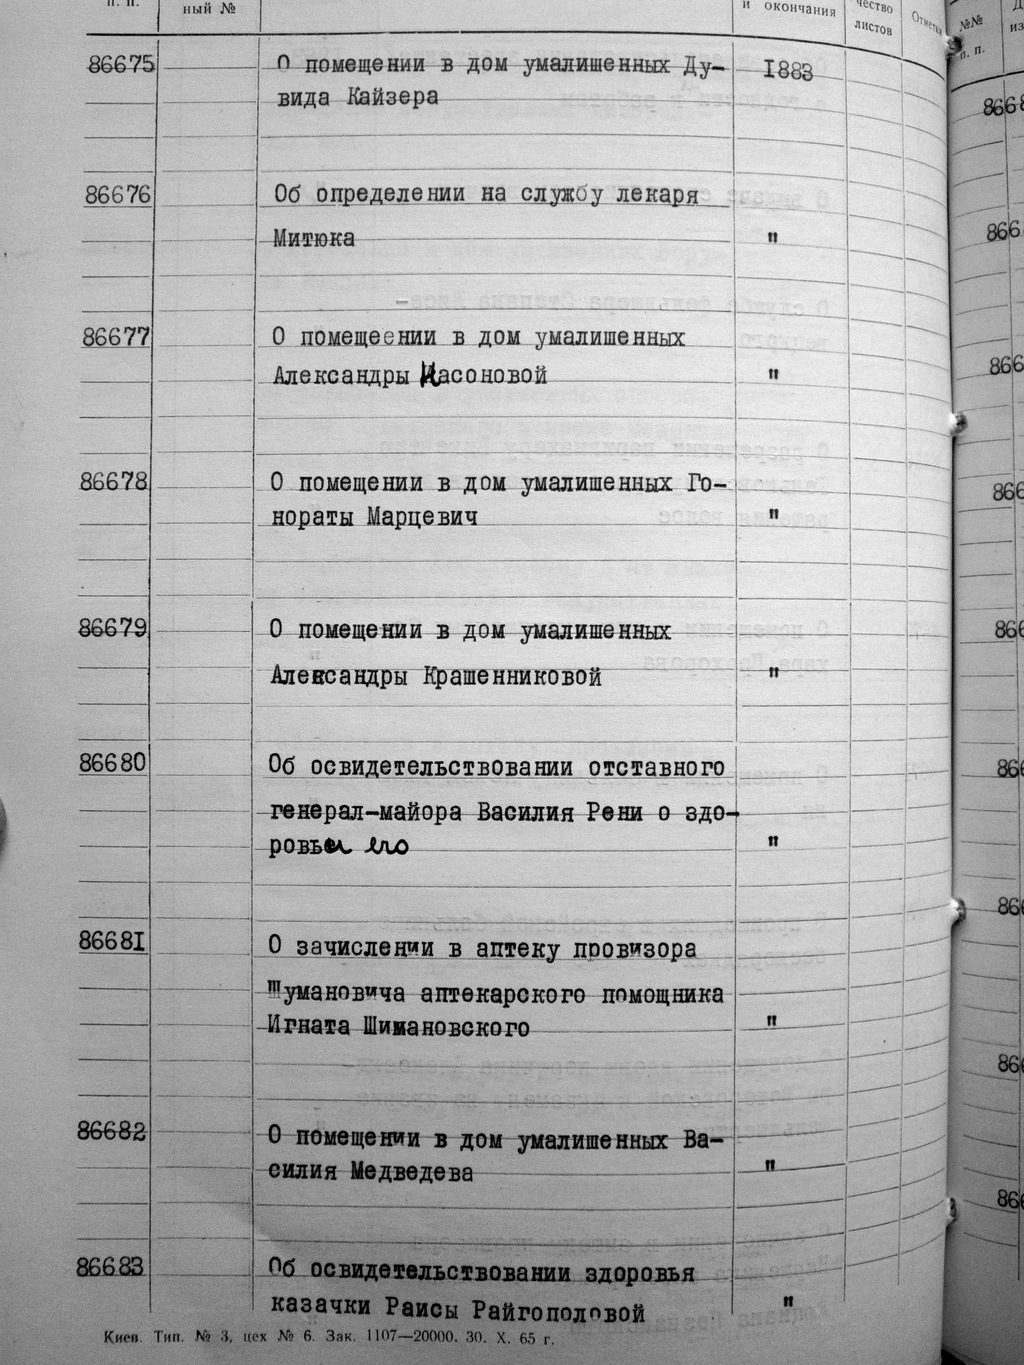 п. п.
ный №
и окончания
чество
листов
Отметки
№№
п. п.
86675 О помещении в дом умалишенных Ду- 1883
вида Кайзера
86676 Об определении на службу лекаря
Митюка "
86677 О помещеении в дом умалишенных
Александры Насоновой "
86678 О помещении в дом умалишенных Го-
нораты Марцевич "
86679 О помещении в дом умалишенных
Александры Крашенниковой "
86680 Об освидетельствовании отставного
генерал-майора Василия Рени о здо-
ровьи его "
86681 О зачислении в аптеку провизора
Шумановича аптекарского помощника
Игната Шимановского "
86682 О помещении в дом умалишенных Ва-
силия Медведева "
86683 Об освидетельствовании здоровья
казачки Раисы Райгополовой "
Киев. Тип. № 3, цех № 6. Зак. 1107—20000. 30. X. 65 г.